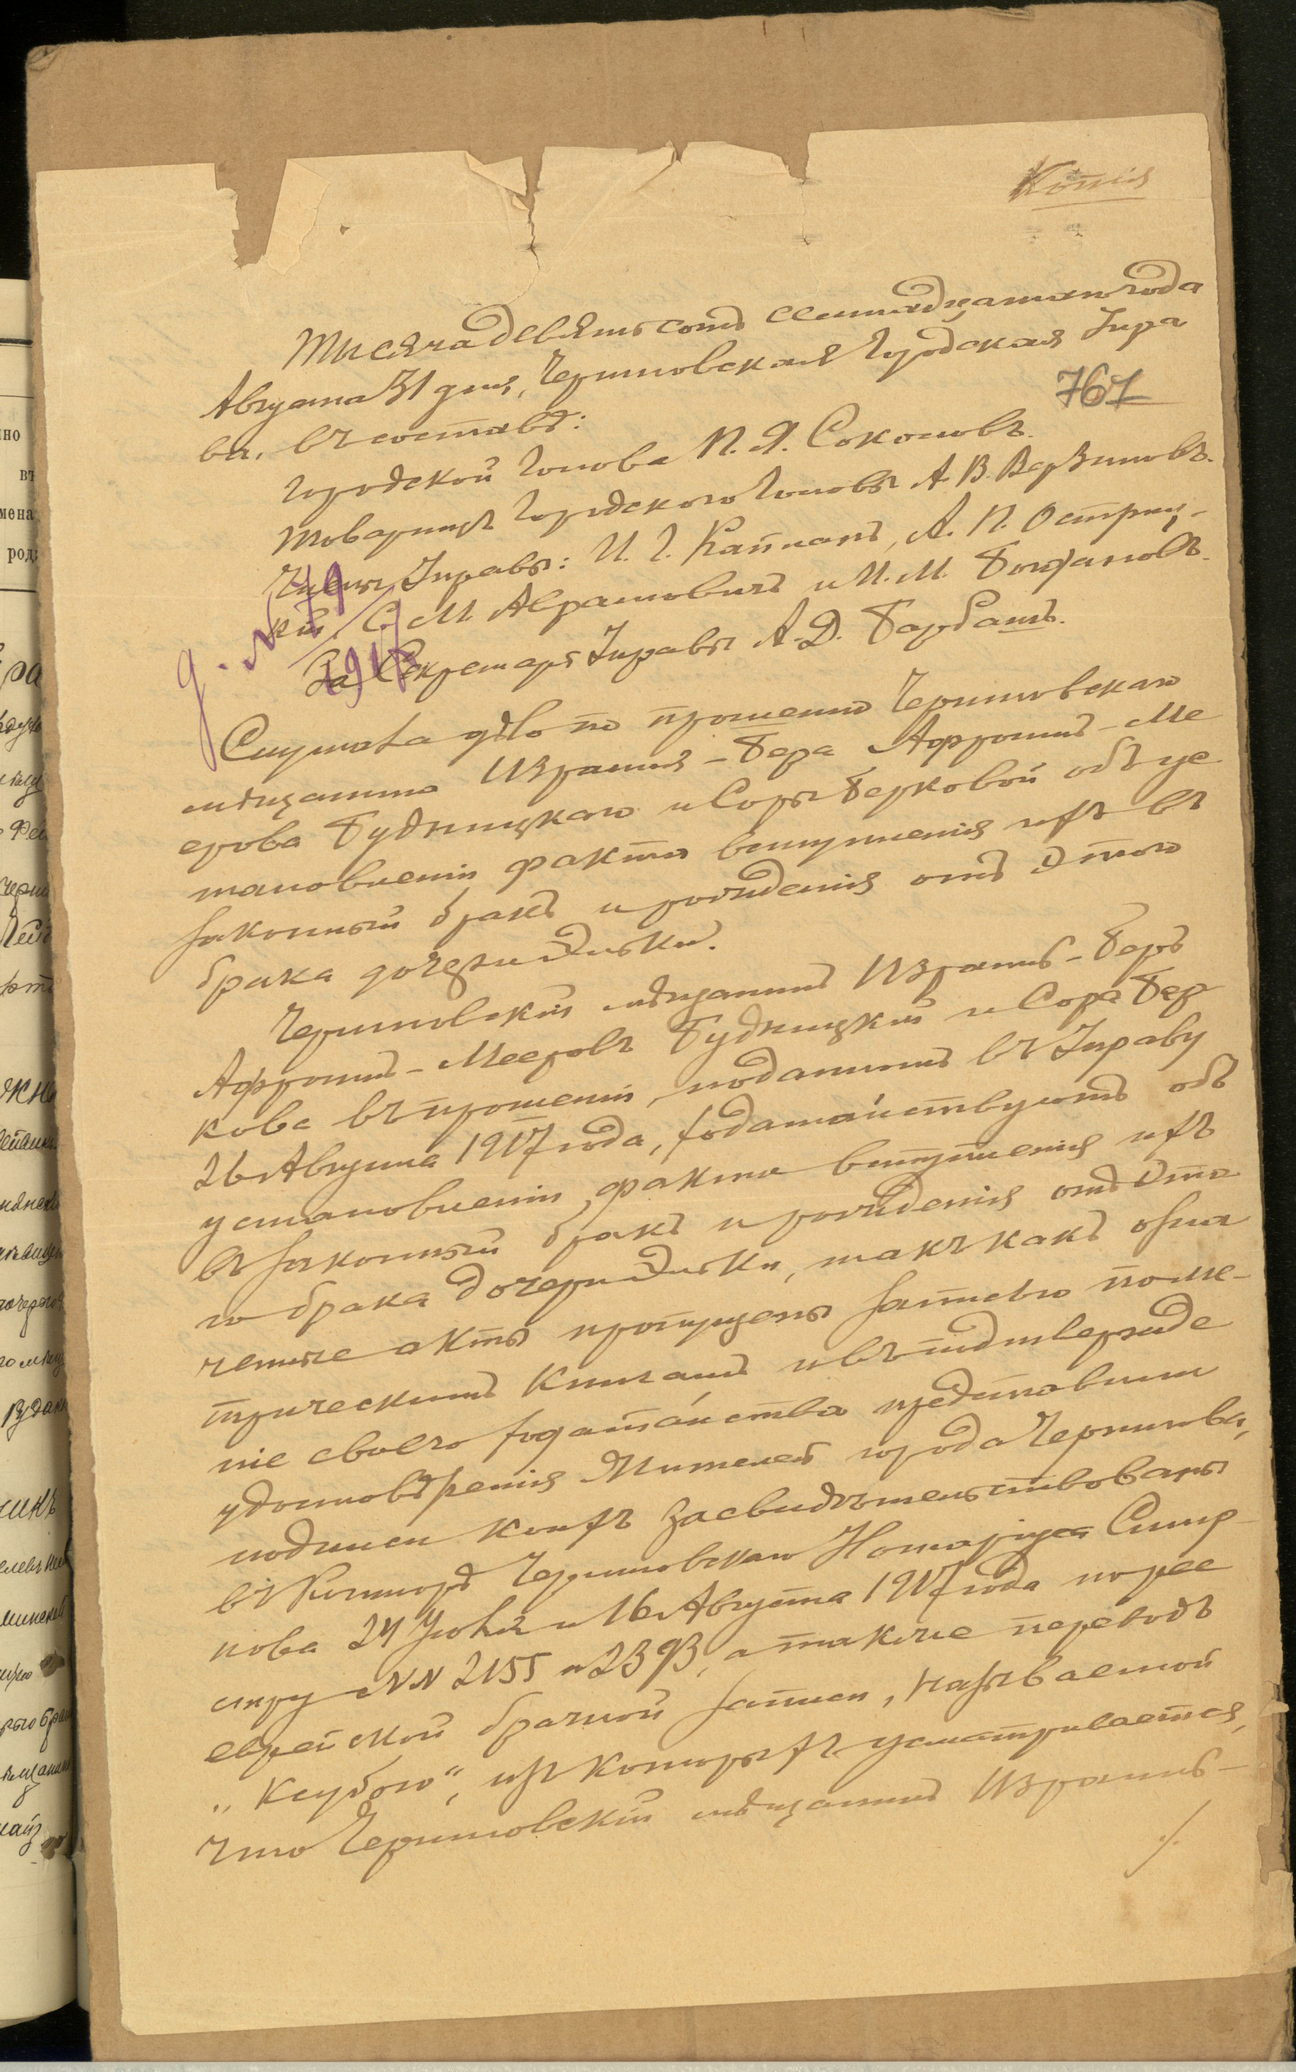 Копія
Тысяча девятьсотъ семнадцатаго года
Августа 31 дня, Черниговская Городская Упра
ва, въ составѣ:
767
Городской Голова П. Я. Соколовъ.
Товарищъ Городского Головы А. В. Верзиловъ.
Члены Управы: И. Г. Каплань, А. П. Острян-
кій, С. М. Абрамовичъ и И. М. Богдановъ.
За Секретаря Управы А. Д. Барбашъ.
д. № 79
1917
Слушала дѣло по прошенію Черниговскаго
мѣщанина Израиля-Бера Афроимъ-Ме
ерова Будницкаго и Соры Берковой объ ус
тановленіи факта вступленія ихъ въ
законный бракъ и рожденія отъ этого
брака дочери Диськи.
Черниговскій мѣщанинъ Израиль-Беръ
Афроимъ-Мееровъ Будницкій и Сора Бер
кова въ прошеніи, поданномъ въ Управу
26 Августа 1917 года, ходатайствуютъ объ
установленіи факта вступленія ихъ
въ законный бракъ и рожденія отъ это
го брака дочери Диськи, такъ какъ озна
ченные акты пропущены записью по ме-
трическимъ книгамъ и въ подтвержде
ніе своего ходатайства представили
удостовѣренія жителей города Чернигова,
подписи коихъ засвидѣтельствованы
въ Конторѣ Черниговскаго Нотаріуса Смир
нова 24 Іюля и 16 Августа 1917 года по рее
стру №№ 2155 и 2393, а также переводъ
еврейской брачной записи, называемой
„Ксубою“, изъ которыхъ усматривается,
что Черниговскій мѣщанинъ Израиль-
./.